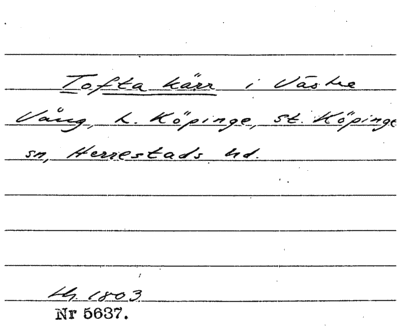 Tofta kärr i Västre
Vång, L. Köpinge, St. Köpinge
sn, Herrestads hd.
Lh. 1803
Nr 5637.